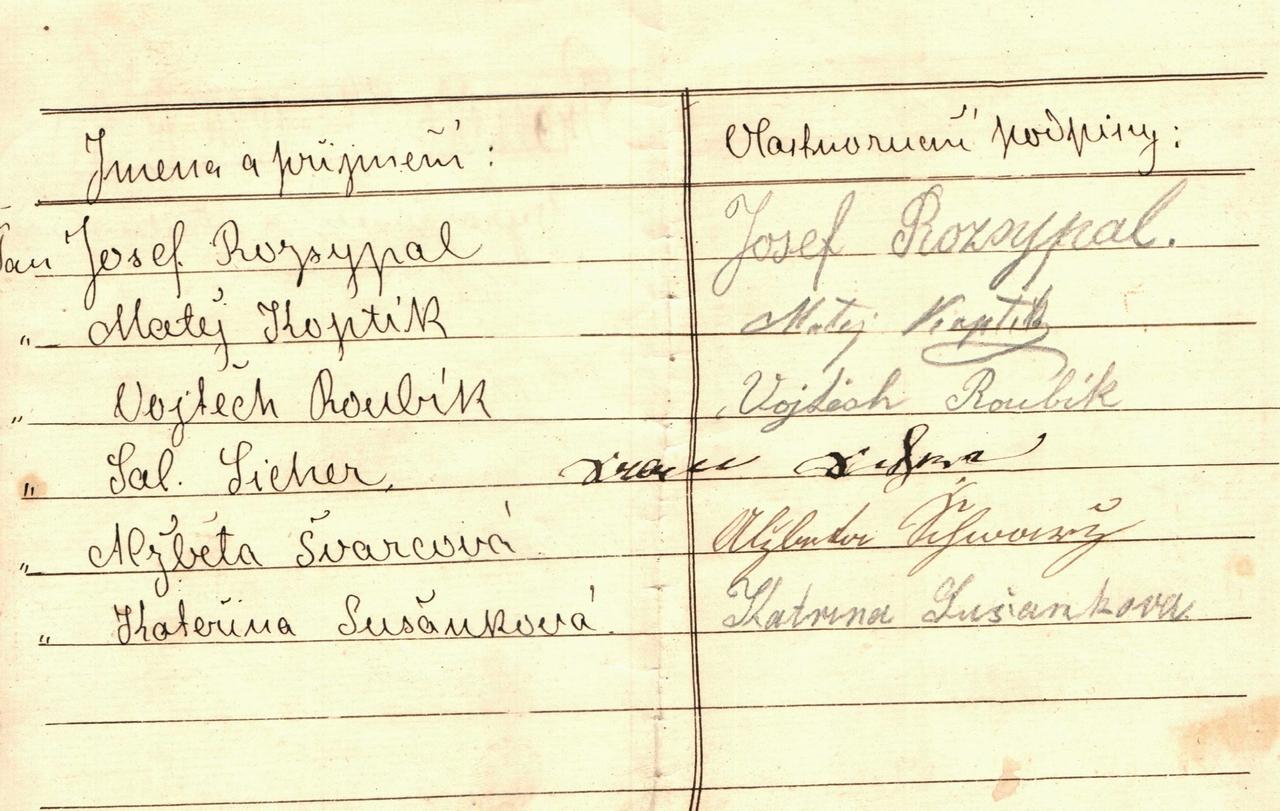 Jmena a příjmení: Vlastnoruční podpisy:
Pan Josef Rozsypal Josef Rozsypal.
„ Matěj Koptík Matěj Koptík
„ Vojtěch Roubík Vojtěch Roubík
„ Sal. Sicher.
„ Alžběta Švarcová Alžbeta Schwarz
„ Kateřina Sušánková. Katrina Sušankova.